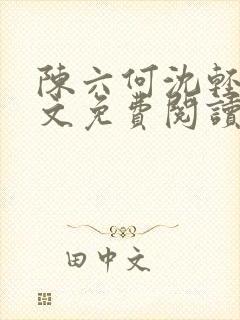 陳六何沈輕
文免費閱讀
田中文